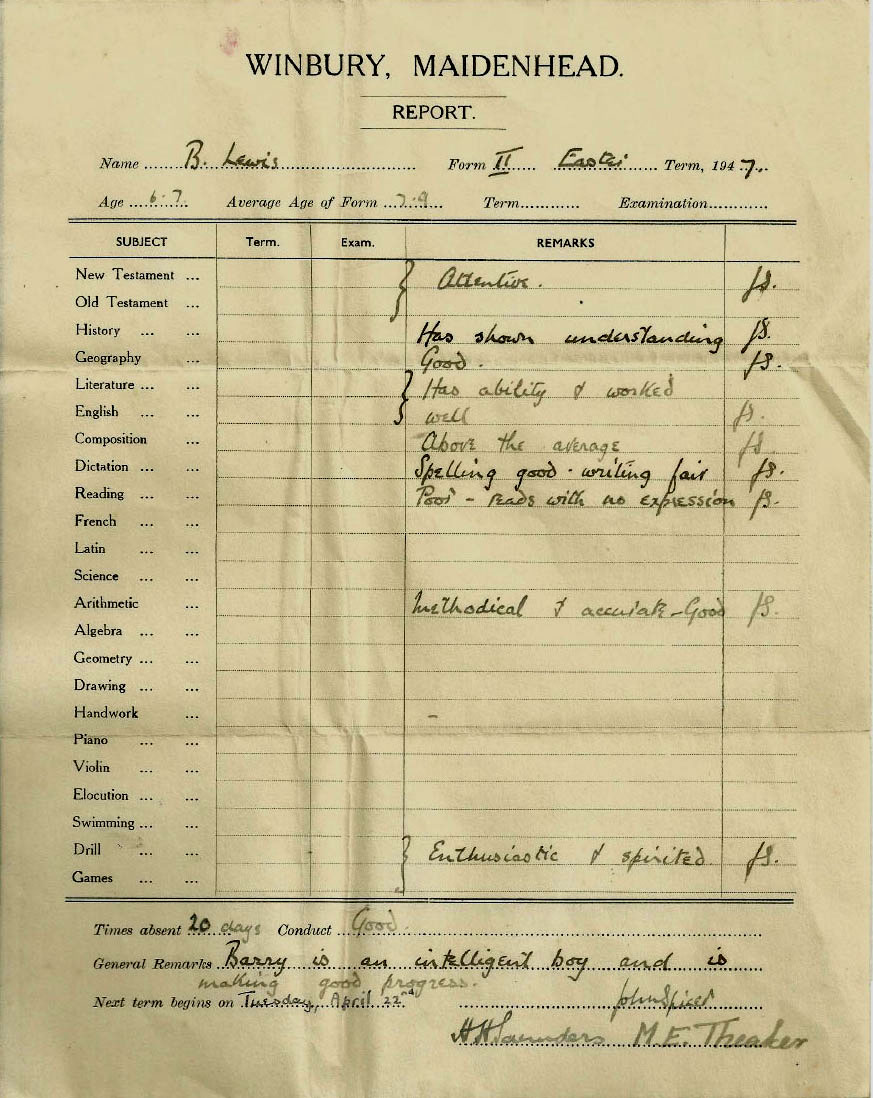 WINBURY, MAIDENHEAD.
REPORT.
Name ........B. Lewis.............................. Form II...... Easter....... Term, 1947...
Age ...6.7. Average Age of Form ...7.9... Term............ Examination............
SUBJECT Term. Exam. REMARKS
New Testament ... Attentive. JS.
Old Testament ...
History ... ... Has shown understanding JS.
Geography ... Good. JS.
Literature ... ... Has ability & worked
English ... ... well JS.
Composition ... Above the average JS.
Dictation ... ... Spelling good - writing fair JS.
Reading ... ... Poor - reads with no expression JS.
French ... ...
Latin ... ...
Science ... ...
Arithmetic ... Methodical & accurate - Good JS.
Algebra ... ...
Geometry ... ...
Drawing ... ...
Handwork ... -
Piano ... ...
Violin ... ...
Elocution ... ...
Swimming ... ...
Drill ... ... Enthusiastic & spirited JS.
Games ... ...
Times absent 20 days Conduct ...Good.
General Remarks Barry is an intelligent boy and is
making good progress.
Next term begins on Tuesday, April 22nd John Spicer
H H Saunders M.E. Theaker